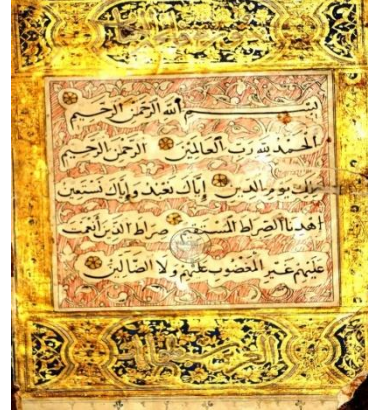 بِسْمِ اللَّهِ الرَّحْمَنِ الرَّحِيمِ
الْحَمْدُ لِلَّهِ رَبِّ الْعَالَمِينَ الرَّحْمَنِ الرَّحِيمِ
مَلِكِ يَوْمِ الدِّينِ إِيَّاكَ نَعْبُدُ وَإِيَّاكَ نَسْتَعِينُ
اهْدِنَا الصِّرَاطَ الْمُسْتَقِيمَ صِرَاطَ الَّذِينَ أَنْعَمْتَ
عَلَيْهِمْ غَيْرِ الْمَغْضُوبِ عَلَيْهِمْ وَلَا الضَّالِّينَ